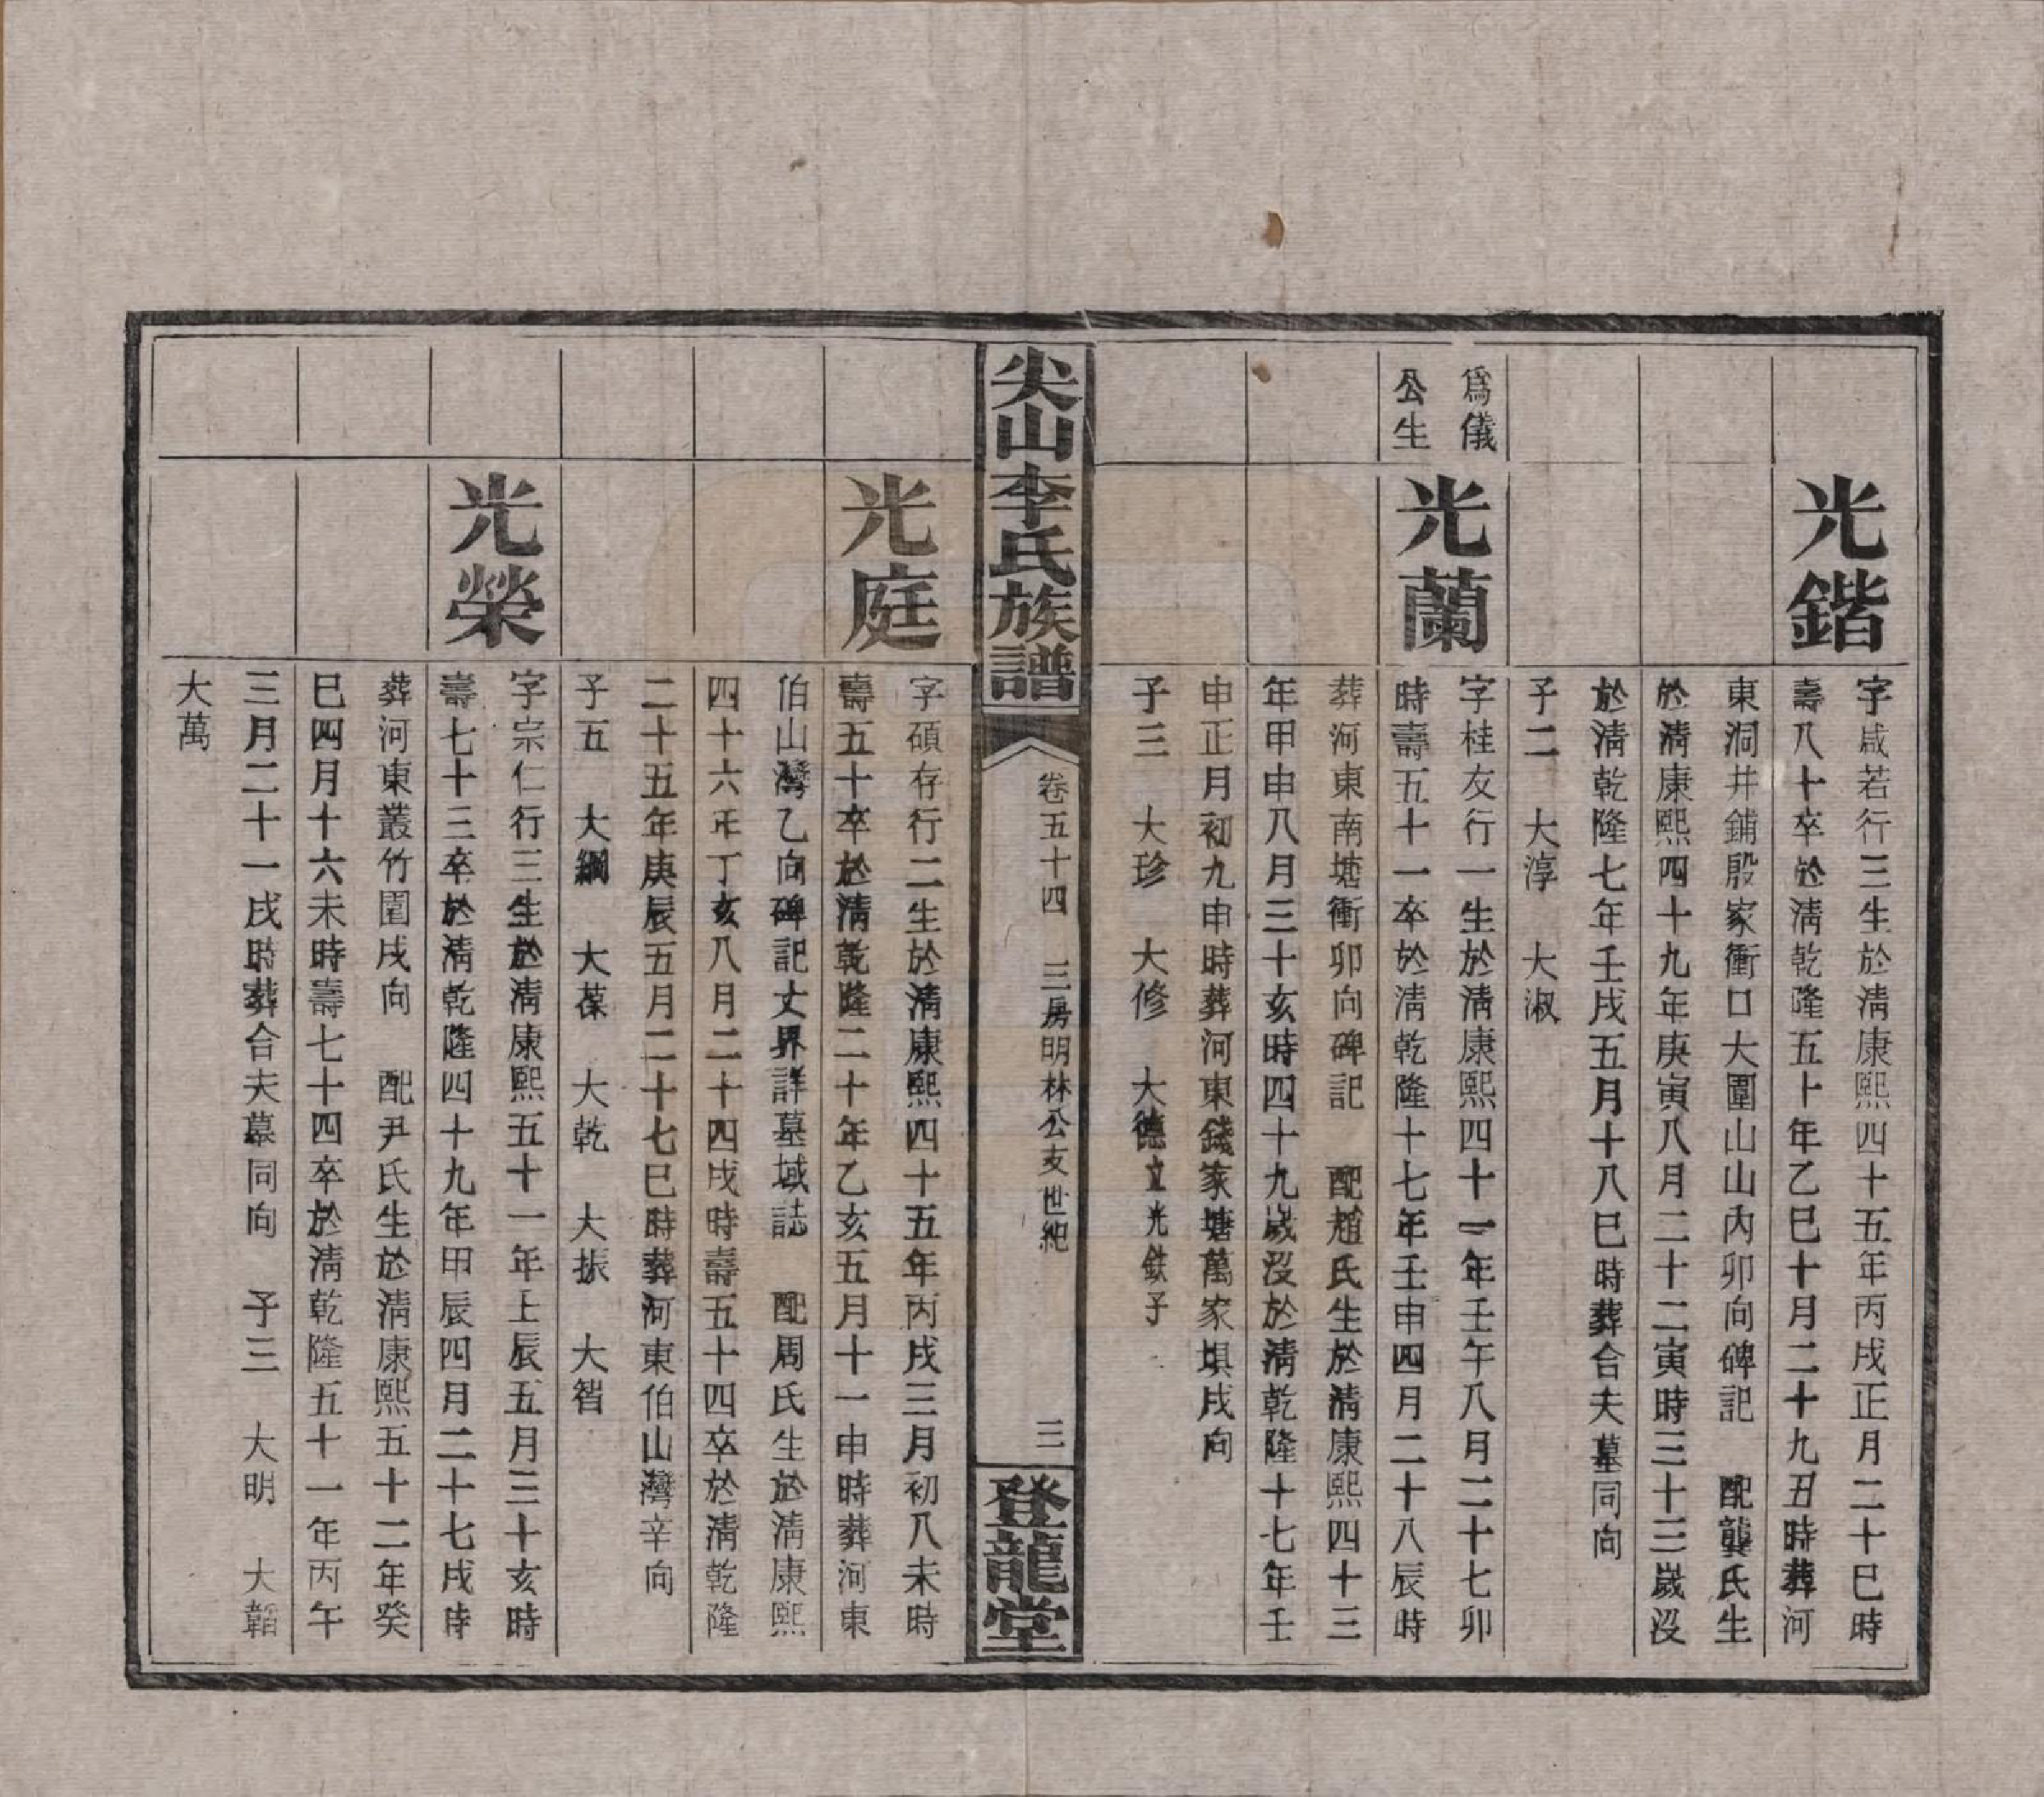 光鍇
字咸若行三生於淸康熙四十五年丙戌正月二十巳時
壽八十卒於淸乾隆五十年乙巳十月二十九丑時葬河
東洞井鋪殷家衝口大圍山山內卯向碑記　配龔氏生
於淸康熙四十九年庚寅八月二十二寅時三十三歲沒
於淸乾隆七年壬戌五月十八巳時葬合夫墓同向
子二　大淳　大淑
爲儀
公生
光蘭
字桂友行一生於淸康熙四十一年壬午八月二十七卯
時壽五十一卒於淸乾隆十七年壬申四月二十八辰時
葬河東南塘衝卯向碑記　配趙氏生於淸康熙四十三
年甲申八月三十亥時四十九歲沒於淸乾隆十七年壬
申正月初九申時葬河東錢家塘萬家垻戌向
子三　大珍　大修　大德立光鈇子
尖山李氏族譜
卷五十四　三房明林公支世紀
三
登龍堂
光庭
字碩存行二生於淸康熙四十五年丙戌三月初八未時
壽五十卒於淸乾隆二十年乙亥五月十一申時葬河東
伯山灣乙向碑記丈界詳墓域誌　配周氏生於淸康熙
四十六年丁亥八月二十四戌時壽五十四卒於淸乾隆
二十五年庚辰五月二十七巳時葬河東伯山灣辛向
子五　大綱　大葆　大乾　大振　大智
光榮
字宗仁行三生於淸康熙五十一年上辰五月三十亥時
壽七十三卒於淸乾隆四十九年甲辰四月二十七戌時
葬河東叢竹園戌向　配尹氏生於淸康熙五十二年癸
巳四月十六未時壽七十四卒於淸乾隆五十一年丙午
三月二十一戌時葬合夫墓同向　子三　大明　大韜
大萬